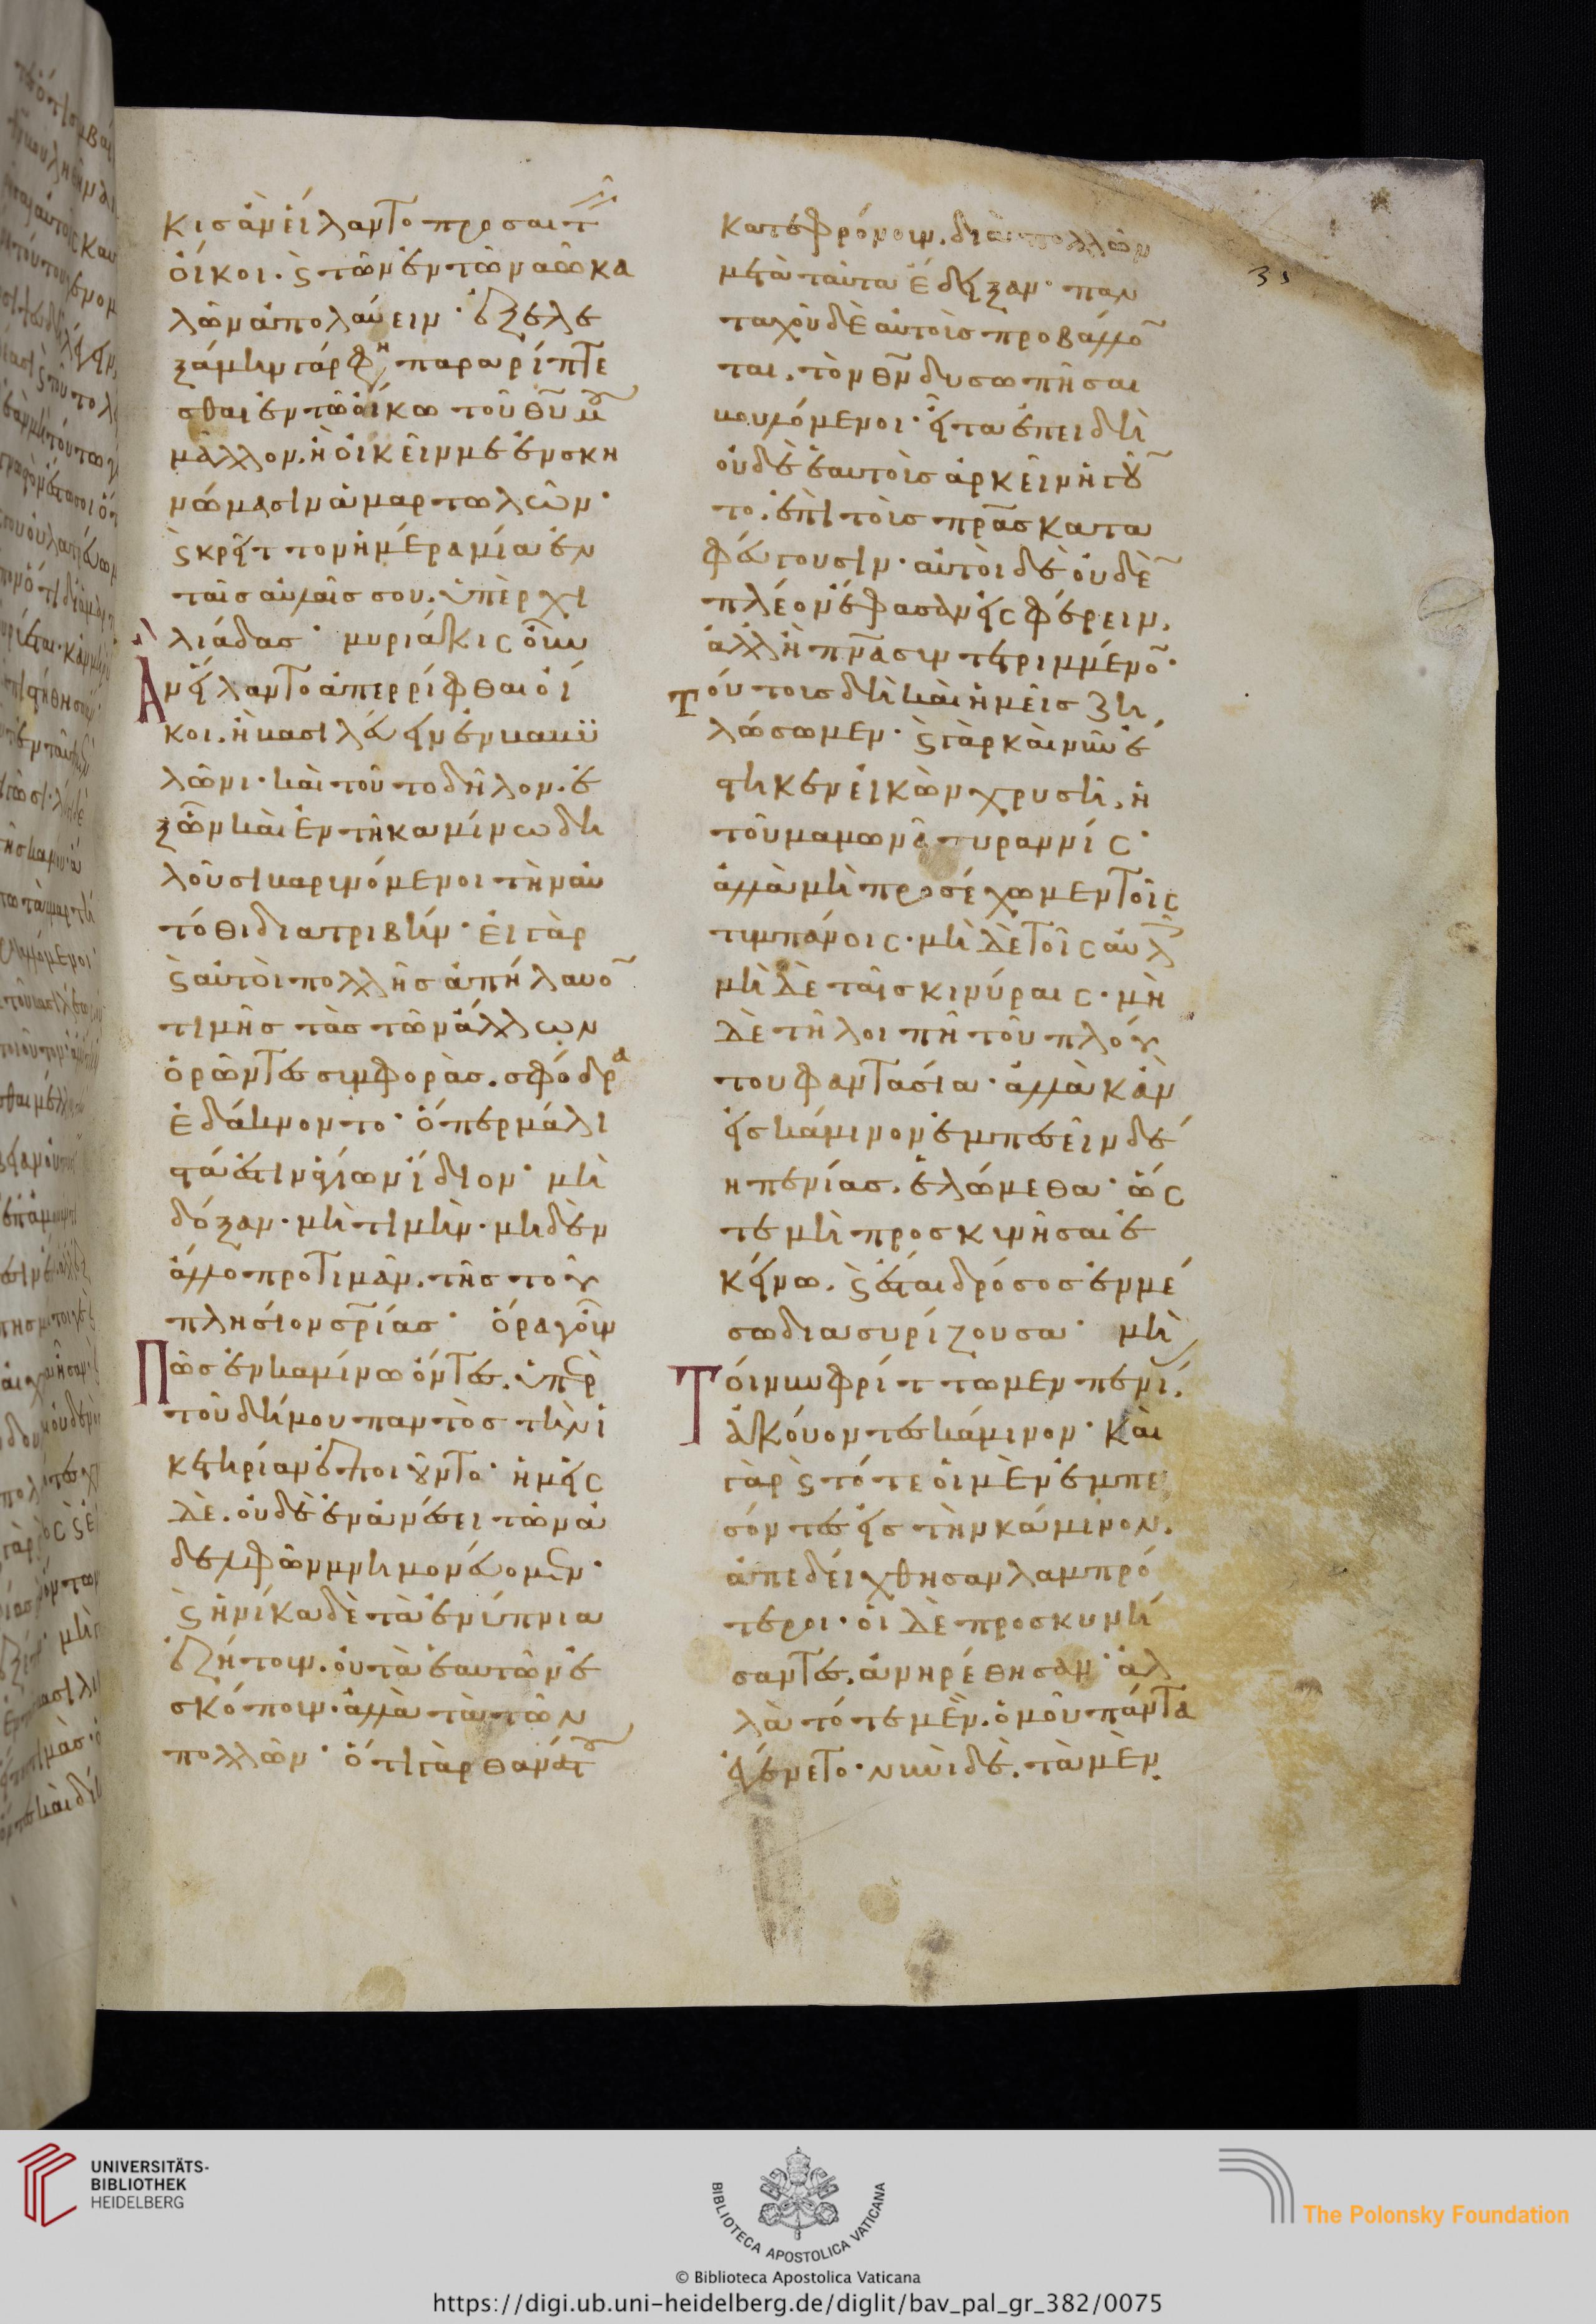 κις ἂν εἵλαντο προσαιτεῖν
οἴκοι. ϛ τῶν ἐν τῶ ναῶ κα
λῶν ἀπολαύειν· ἐξελε
ξάμην γάρ φη παραρίπτε
σθαι ἐν τῶ οἴκω τοῦ θῦ μ
μᾶλλον. ἢ οἰκεῖν με ἐν σκη
νώμασιν ἁμαρτωλῶν·
ϛ κρεῖττον ἡμέρα μία ἐν
ταῖς αὐλαῖς σου. ὑπὲρ χι
λιάδας· μυριάκις οὖν
Ἀνείλαντο ἀπερρίφθαι οἴ
κοι. ἢ βασιλεύειν ἐν βαβυ
λῶνι· καὶ τοῦτο δῆλον. ἐ
ξ ὧν καὶ ἐν τῆ καμίνω δη
λοῦσι βαρυνόμενοι τὴν αὐ
τόθι διατριβήν· εἰ γὰρ
ϛ αὐτοὶ πολλῆς ἀπήλαυο̄
τιμῆς τὰς τῶν ἄλλων
ὁρῶντες συμφοράς. σφόδρα
ἐδάκνοντο· ὅπερ μάλι
στά ἐστιν ἁγίων ἴδιον· μὴ
δόξαν· μὴ τιμὴν· μηδὲν
ἄλλο προτιμᾶν. τῆς τοῦ
πλησίον σρ̄ίας· ὅρα γοῦν
Πῶς ἐν καμίνω ὄντες. ὑπὲρ
τοῦ δήμου παντὸς τὴν ἱ
κετηρίαν ἐποιοῦντο· ἡμεῖς
δὲ. οὐδὲ ἐν ἀνέσει τῶν ἀ
δελφῶν μνημονεύομεν·
ϛ ἡνίκα δὲ τὰ ἐνύπνια
ἐζήτουν. οὐ τὰ ἑαυτῶν ἐ
σκόπουν· ἀλλὰ τὰ τῶν
πολλῶν· ὅτι γὰρ θανάτ
κατεφρόνουν. διὰ πολλῶν
μετὰ ταῦτα ἔδειξαν· παν
ταχοῦ δὲ αὐτοὺς προβάλλο̄
ται. τὸν θν̄ δυσωπῆσαι
βουλόμενοι· εἶτα ἐπειδὴ
οὐδὲ ἑαυτοὺς ἀρκεῖν ἡγοῦ
το. ἐπὶ τοὺς πρ̄ας κατα
φεύγουσιν· αὐτοὶ δὲ οὐδὲ̄
πλέον ἔφασαν εἰσφέρειν.
ἀλλ' ἢ πν̄α συντετριμμένο̄·
Τούτους δὴ καὶ ἡμεῖς ζη
λώσωμεν· ϛ γὰρ καὶ νῦν ἕ
στηκεν εἰκὼν χρυσῆ. ἡ
τοῦ μαμωνᾶ τυραννίς·
ἀλλὰ μὴ προσέχωμεν τοῖς
τυμπάνοις· μὴ δὲ τοῖς αὐλ
μὴ δὲ ταῖς κινύραις· μὴ
δὲ τῆ λοιπῆ τοῦ πλού
του φαντασία· ἀλλὰ κἂν
εἰς κάμινον ἐμπεσεῖν δέ
η πενίας. ἑλώμεθα· ὥς
τε μὴ προσκυνῆσαι ἐ
κείνω. ϛ ἔσται δρόσος ἐν μέ
σω διασυρίζουσα· μὴ
Τοίνυν φρίττωμεν πενί.
ἀκούοντες κάμινον· καὶ
γὰρ ϛ τότε οἱ μὲν ἐμπε
σόντες εἰς τὴν κάμινον.
ἀπεδείχθησαν λαμπρό
τεροι· οἱ δὲ προσκυνή
σαντες. ἀνηρέθησαν· ἀλ
λὰ τότε μὲν. ὁμοῦ πάντα
ἐγένετο· νυνὶ δὲ. τὰ μὲν
UNIVERSITÄTS-
BIBLIOTHEK
HEIDELBERG
BIBLIOTECA APOSTOLICA VATICANA
The Polonsky Foundation
© Biblioteca Apostolica Vaticana
https://digi.ub.uni-heidelberg.de/diglit/bav_pal_gr_382/0075